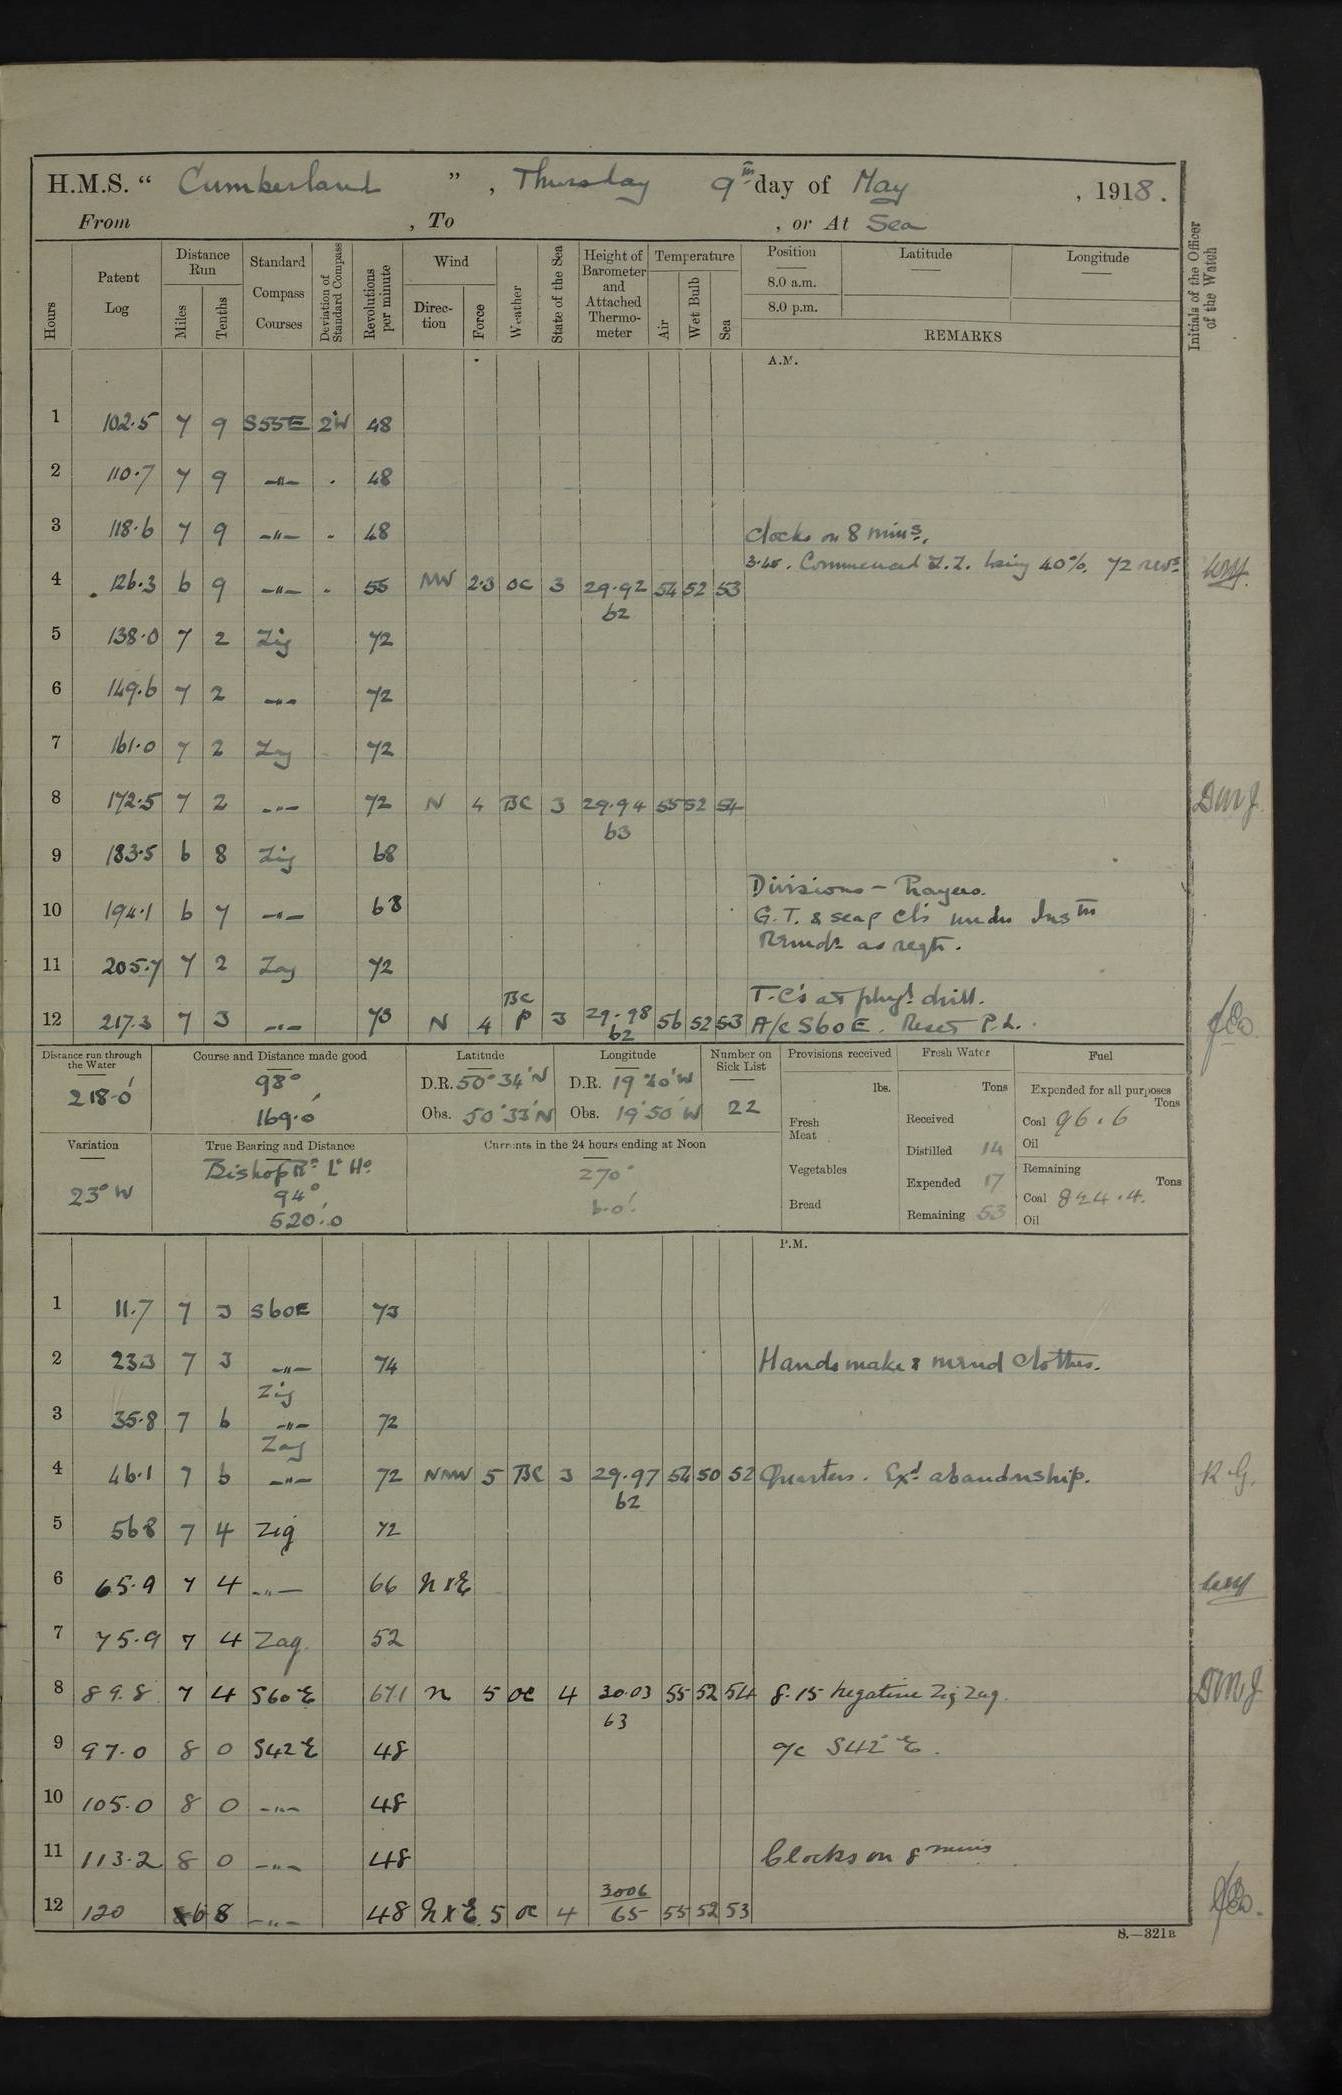 H.M.S. “ Cumberland ” , Thursday 9th day of May , 1918.
From , To , or At Sea
Hours Patent Log Distance Run Miles Tenths Standard Compass Courses Deviation of Standard Compass Revolutions per minute Wind Direction Force Weather State of the Sea Height of Barometer and Attached Thermometer Temperature Air Wet Bulb Sea Position 8.0 a.m. 8.0 p.m. Latitude Longitude REMARKS Initials of the Officer of the Watch
A.M.
1 102.5 7 9 S55E 2°W 48
2 110.7 7 9 -"- . 48
3 118.6 7 9 -"- . 48 Clocks on 8 mins.
3.40. Commenced Z.Z. losing 40%. 72 revs
4 126.3 6 9 -"- . 55 NW 2.3 OC 3 29.92 54 52 53
62
5 138.0 7 2 Zig 72
6 149.6 7 2 -"- 72
7 161.0 7 2 Zag 72
8 172.5 7 2 -"- 72 N 4 BC 3 29.94 55 52 54 DMJ.
63
9 183.5 6 8 Zig 68
Divisions - Prayers.
10 194.1 6 7 -"- 68 G.T. & seap cl's under Instn
Remdr as reqd.
11 205.7 7 2 Zag 72
T.C's at phys'l drill.
12 217.3 7 3 -"- 73 N 4 BC P 3 29.98 56 52 53 A/c S60E. Reset P.L.
62
Distance run through the Water Course and Distance made good Latitude Longitude Number on Sick List Provisions received Fresh Water Fuel
218.0' 98° D.R. 50° 34' N D.R. 19° 40' W 22 lbs. Tons Expended for all purposes Tons
169.0' Obs. 50° 33' N Obs. 19° 50' W Fresh Meat Received Coal 96.6
Oil
Variation True Bearing and Distance Currents in the 24 hours ending at Noon Distilled 14 Remaining
23° W Bishop Rk Lt Ho 270° Vegetables Expended 17 Tons
94° 6.0' Coal 824.4.
520'.0 Bread Remaining 53 Oil
P.M.
1 11.7 7 3 S60E 73
2 233 7 3 -"- 74 Hands make & mend clothes.
Zig
3 35.8 7 6 -"- 72
Zag
4 46.1 7 6 -"- 72 NNW 5 BC 3 29.97 54 50 52 Quarters. Exd abandonship. R.G.
62
5 568 7 4 Zig 72
6 65.9 7 4 -"- 66 N x E
7 75.9 7 4 Zag. 52
8 89.8 7 4 S60E 67.1 N 5 OC 4 30.03 55 52 54 8.15 Negative Zig Zag. DMJ
63
9 97.0 8 0 S42E 48 a/c S42°E.
10 105.0 8 0 -"- 48
11 113.2 8 0 -"- 48 Clocks on 8 mins
12 120 6 8 -"- 48 N x E 5 OC 4 3006 55 52 53
65
S.—321B